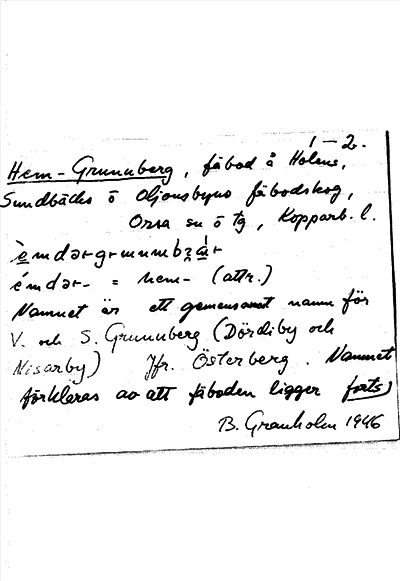 1-2.
Hem-Grunuberg, fäbod å Holens,
Sundbäcks o Oljonsbyns fäbodskog,
Orsa sn o tg, Kopparb. l.
émdər- = hem- (attr.)
Namnet är ett gemensamt namn för
V. och S. Grunuberg (Dördiby och
Nisarby) Jfr. Österberg. Namnet
förklaras av att fäboden ligger forts)
B. Granholm 1946